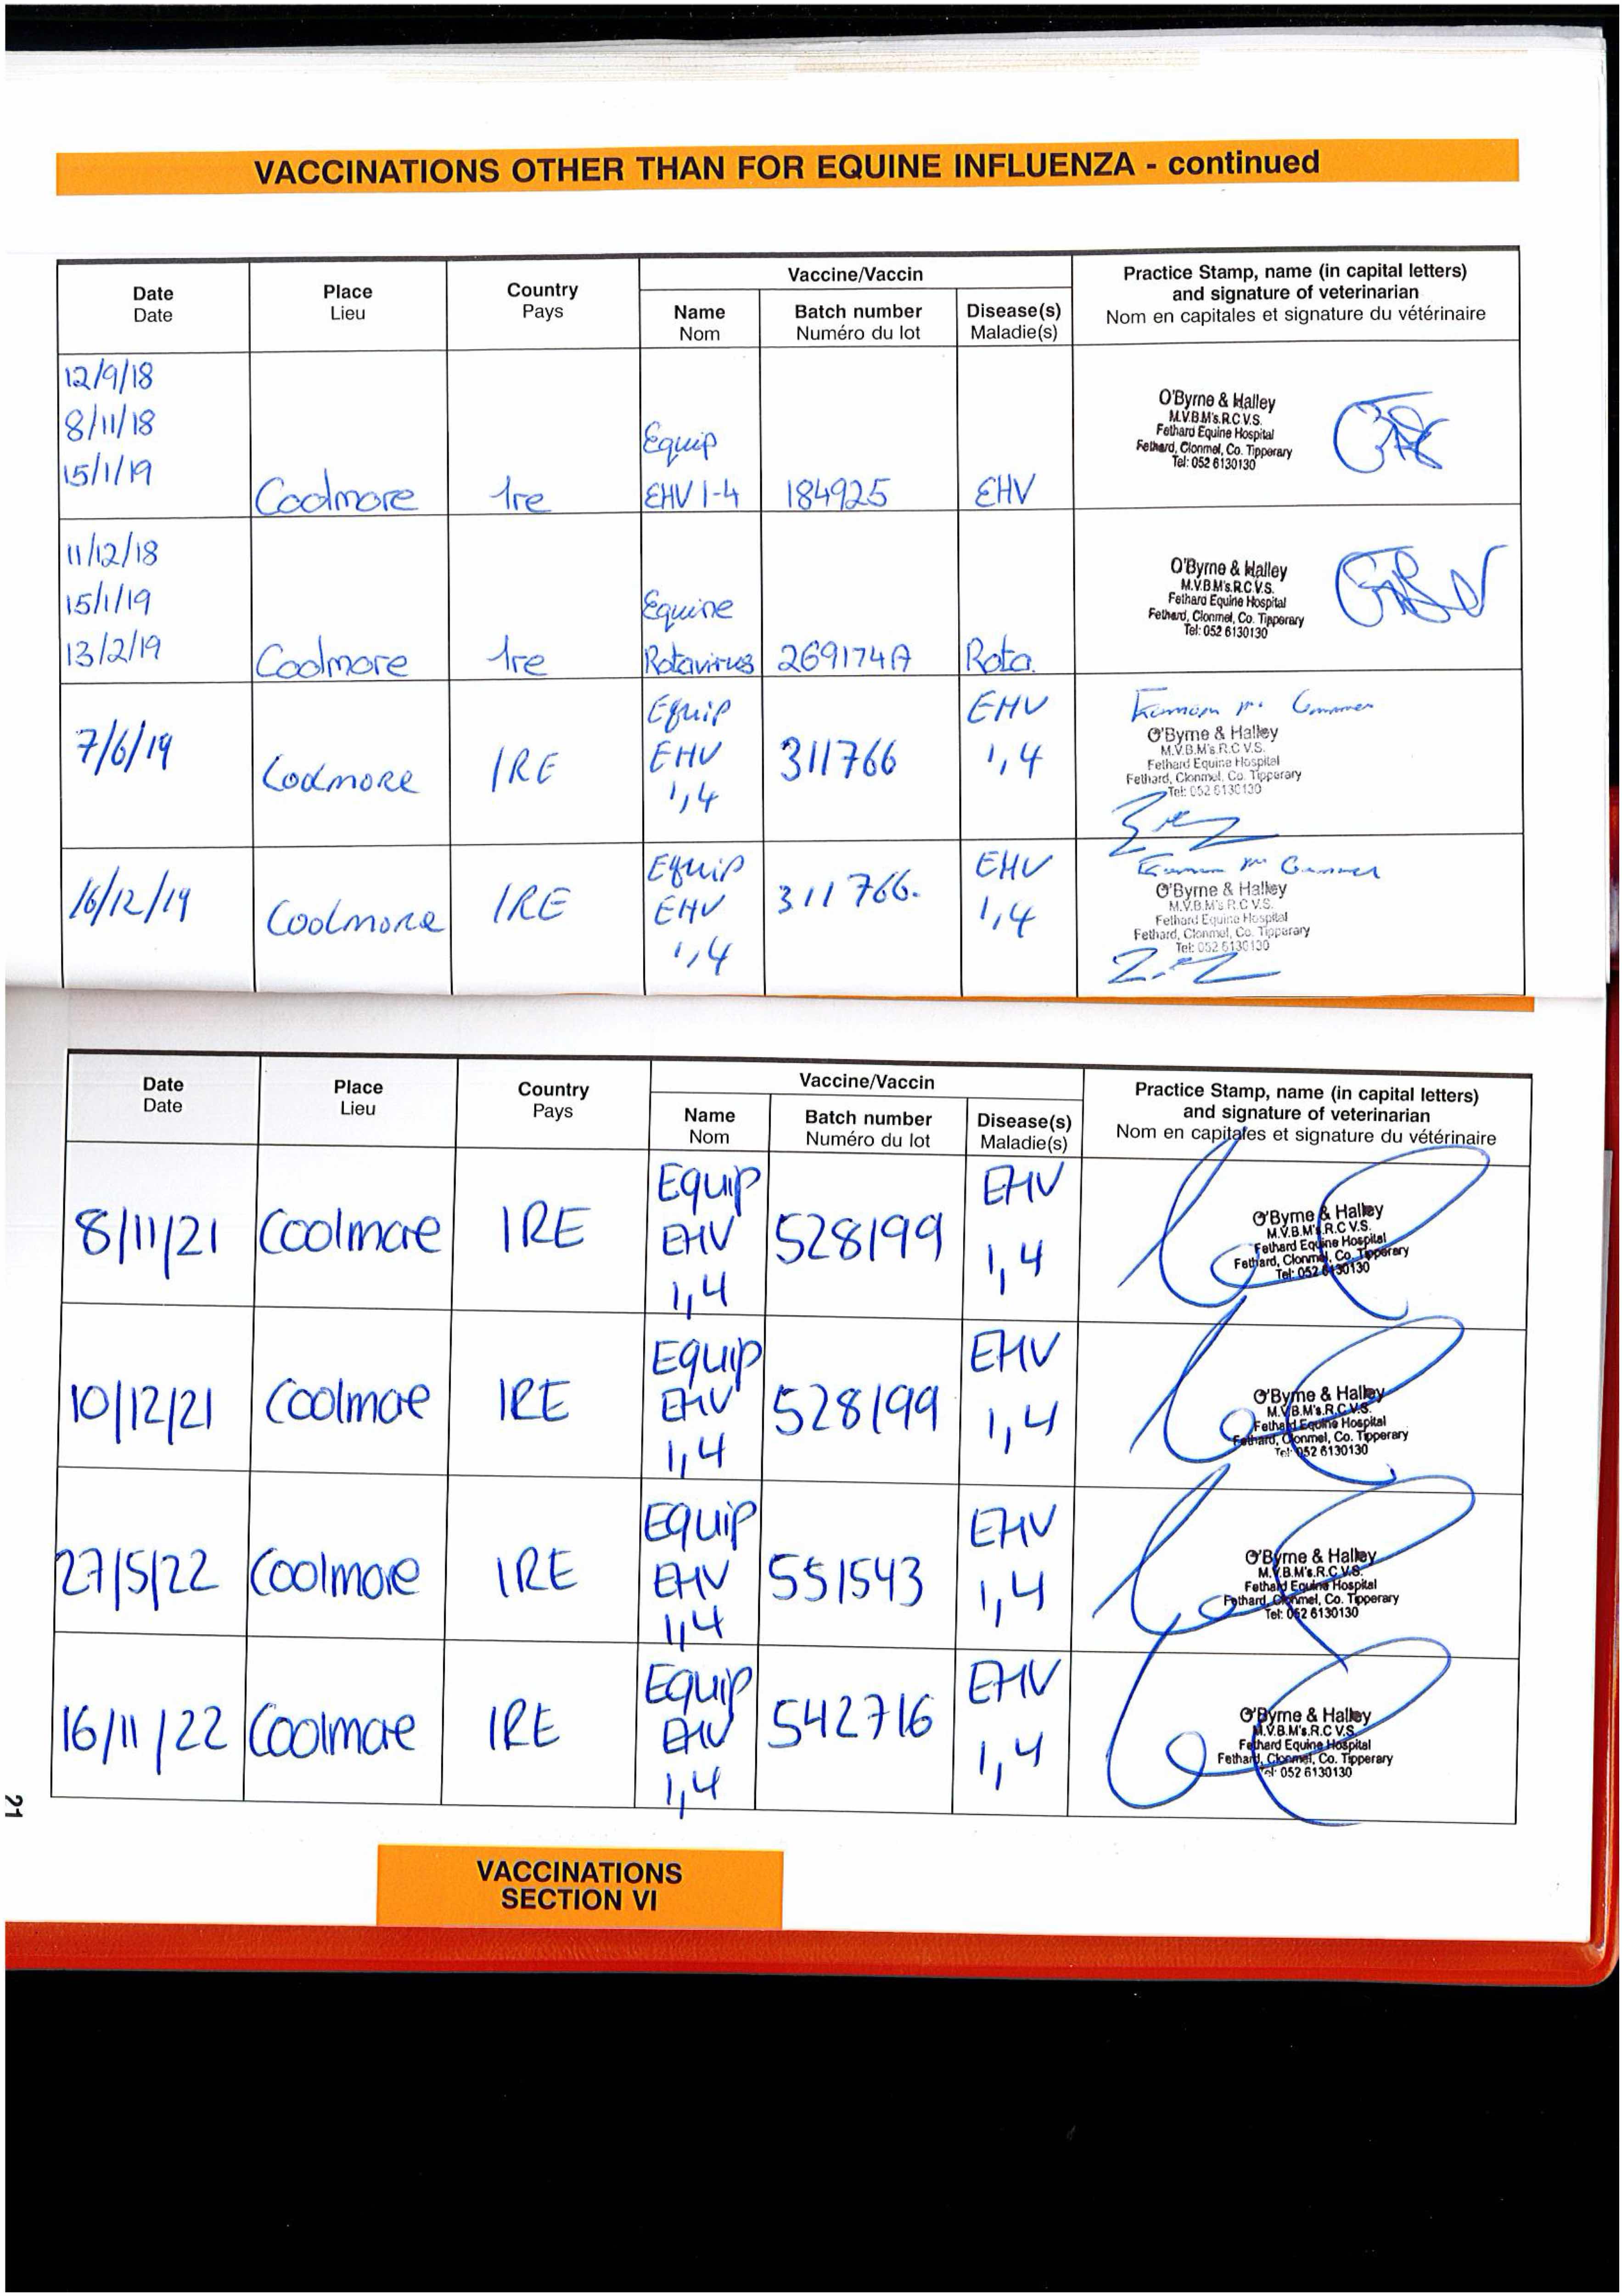 VACCINATIONS OTHER THAN FOR EQUINE INFLUENZA - continued
Date Place Country Vaccine/Vaccin Practice Stamp, name (in capital letters)
Date Lieu Pays Name Batch number Disease(s) and signature of veterinarian
Nom Numéro du lot Maladie(s) Nom en capitales et signature du vétérinaire
12/9/18
8/11/18
15/1/19
Coolmore
Ire
Equip
EHV 1-4
184925
EHV
O'Byrne & Halley
M.V.B.M's.R.C.V.S.
Fethard Equine Hospital
Fethard, Clonmel, Co. Tipperary
Tel: 052 6130130
11/12/18
15/1/19
13/2/19
Coolmore
Ire
Equine
Rotavirus
269174A
Rota.
O'Byrne & Halley
M.V.B.M's.R.C.V.S.
Fethard Equine Hospital
Fethard, Clonmel, Co. Tipperary
Tel: 052 6130130
7/6/19
Coolmore
IRE
Equip
EHV
1,4
311766
EHV
1,4
O'Byrne & Halley
M.V.B.M's.R.C.V.S.
Fethard Equine Hospital
Fethard, Clonmel, Co. Tipperary
Tel: 052 6130130
16/12/19
Coolmore
IRE
Equip
EHV
1,4
311766.
EHV
1,4
O'Byrne & Halley
M.V.B.M's.R.C.V.S.
Fethard Equine Hospital
Fethard, Clonmel, Co. Tipperary
Tel: 052 6130130
Date Place Country Vaccine/Vaccin Practice Stamp, name (in capital letters)
Date Lieu Pays Name Batch number Disease(s) and signature of veterinarian
Nom Numéro du lot Maladie(s) Nom en capitales et signature du vétérinaire
8/11/21
Coolmore
IRE
Equip
EHV
1,4
528199
EHV
1,4
O'Byrne & Halley
M.V.B.M's.R.C.V.S.
Fethard Equine Hospital
Fethard, Clonmel, Co. Tipperary
Tel: 052 6130130
10/12/21
Coolmore
IRE
Equip
EHV
1,4
528199
EHV
1,4
O'Byrne & Halley
M.V.B.M's.R.C.V.S.
Fethard Equine Hospital
Fethard, Clonmel, Co. Tipperary
Tel: 052 6130130
27/5/22
Coolmore
IRE
Equip
EHV
1,4
551543
EHV
1,4
O'Byrne & Halley
M.V.B.M's.R.C.V.S.
Fethard Equine Hospital
Fethard, Clonmel, Co. Tipperary
Tel: 052 6130130
16/11/22
Coolmore
IRE
Equip
EHV
1,4
542716
EHV
1,4
O'Byrne & Halley
M.V.B.M's.R.C.V.S.
Fethard Equine Hospital
Fethard, Clonmel, Co. Tipperary
Tel: 052 6130130
21
VACCINATIONS
SECTION VI